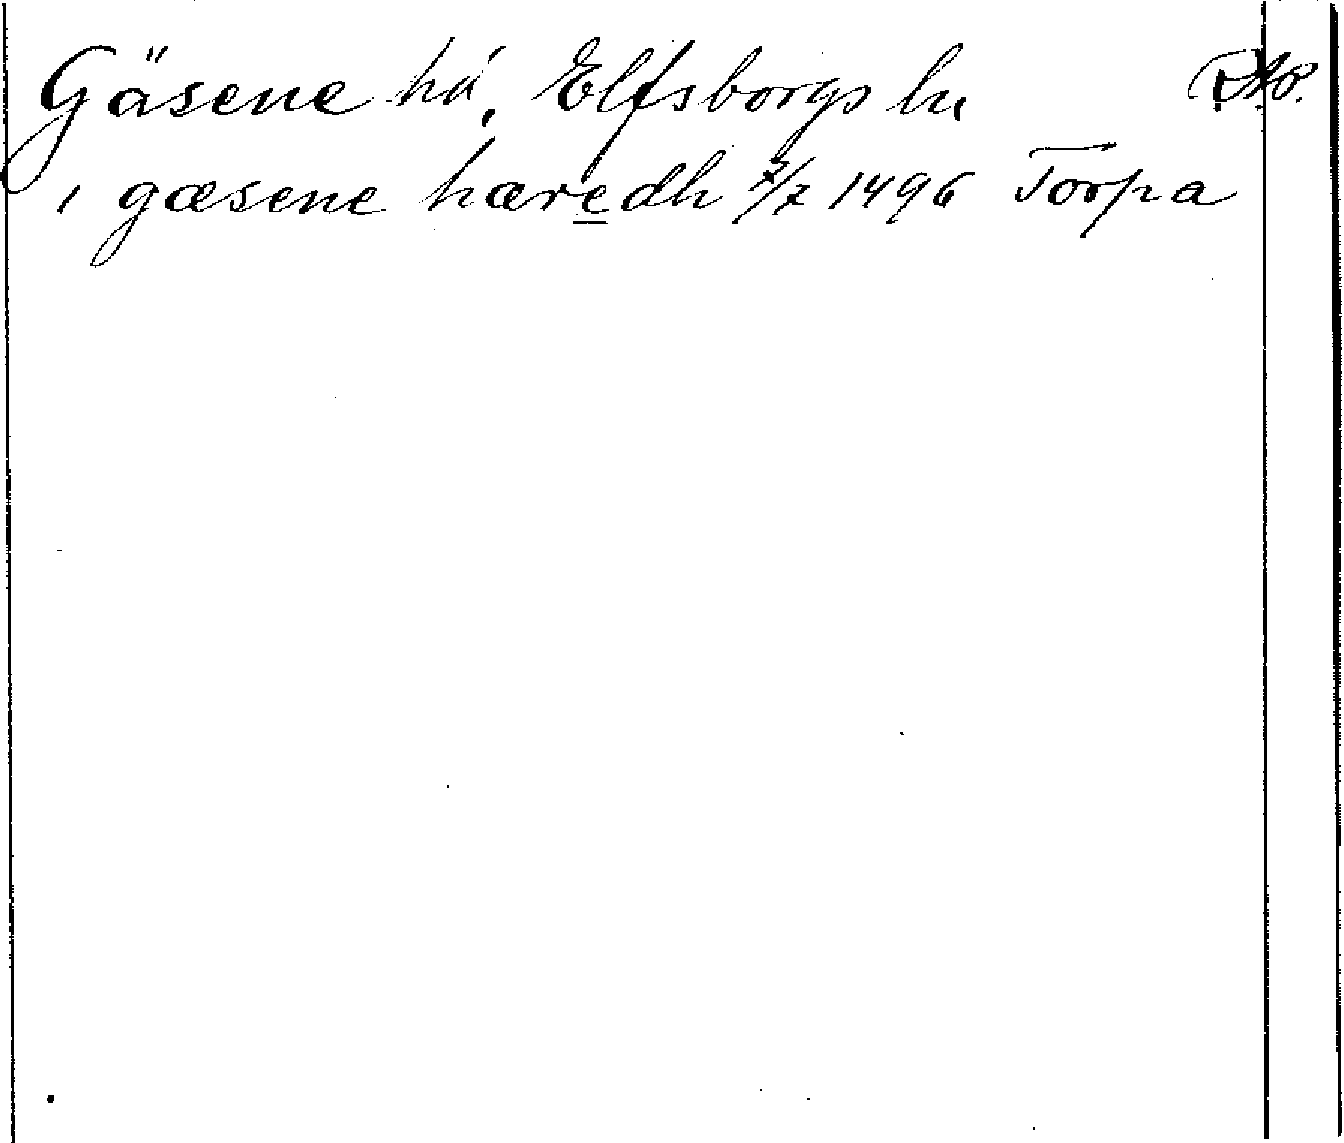 Gäsene hd, Elfsborgs ln RAp.
i gæsene hæredh 7/7 1496 Torpa